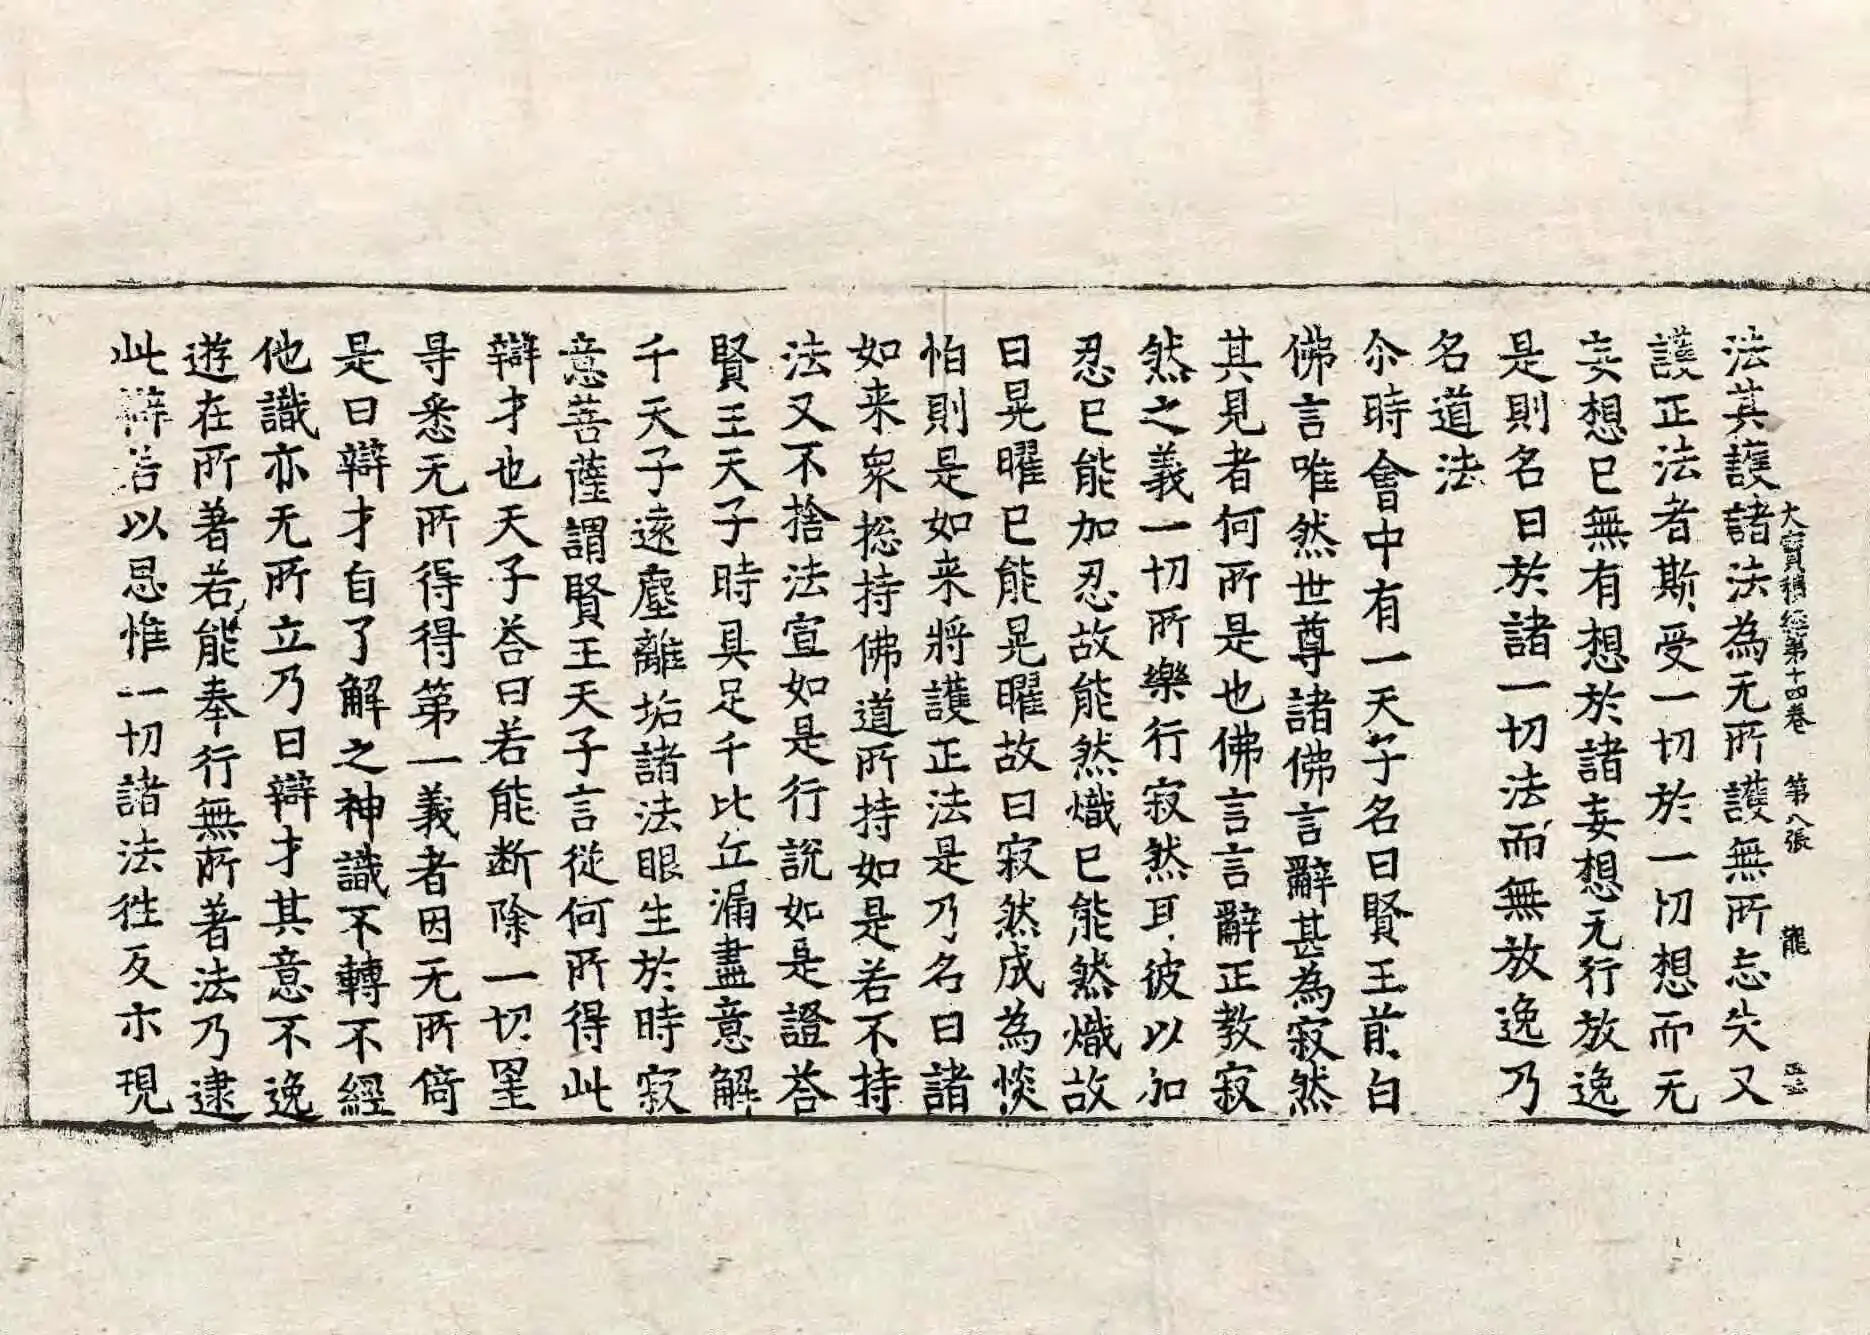 大寶積經第十四卷　第八張　龍
法其護諸法為无所護無所忘失又
護正法者斯受一切於一切想而无
妄想已無有想於諸妄想无行放逸
是則名曰於諸一切法而無放逸乃
名道法
尒時會中有一天子名曰賢王前白
佛言唯然世尊諸佛言辭甚為寂然
其見者何所是也佛言言辭正教寂
然之義一切所樂行寂然耳彼以加
忍已能加忍故能然熾已能然熾故
曰晃曜已能晃曜故曰寂然成為惔
怕則是如来將護正法是乃名曰諸
如来衆捴持佛道所持如是若不持
法又不捨法宣如是行說如是證荅
賢王天子時具足千比丘漏盡意解
千天子遠塵離垢諸法眼生於時寂
意菩薩謂賢王天子言從何所得此
辯才也天子荅曰若能断除一切罣
㝵悉无所得得第一義者因无所倚
是曰辯才自了解之神識不轉不經
他識亦无所立乃曰辯才其意不逸
遊在所著若能奉行無所著法乃逮
此辯若以思惟一切諸法徃反亦現